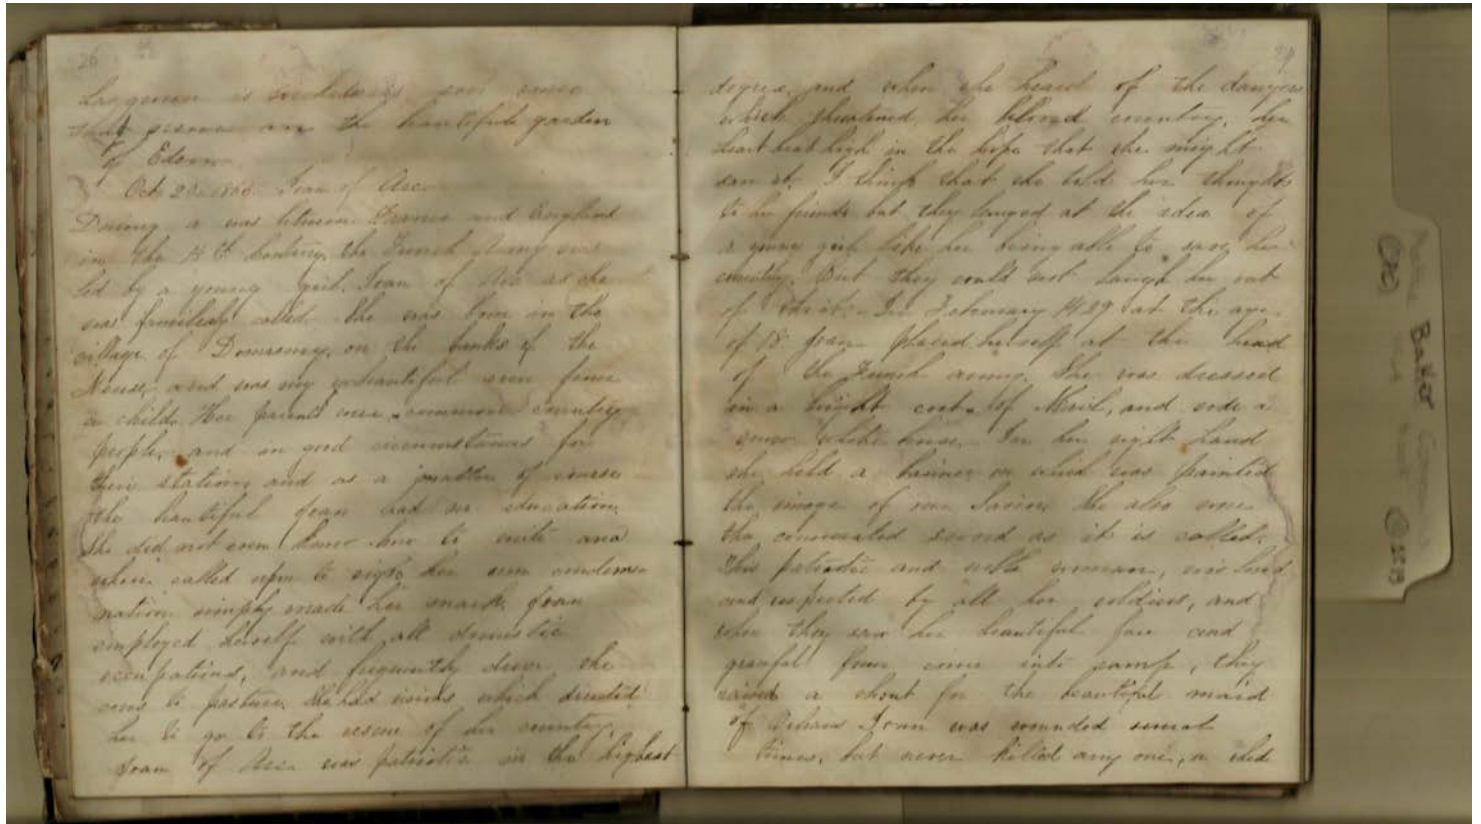 26
has
that scene in the beautiful garden
of Eden
Oct 20 Joan of Arc
During a war between France and England
in the 15th Century, the French Army was
led by a young girl. Joan of Arc as she
was familiarly called. She was born in the
village of Domremy, on the banks of the
and was beautiful even from
a child. Her parents were common country
people, and in good circumstances for
their station, and as a matter of course
the beautiful Joan had no education
She did not even know how to write and
when called upon to sign her own condem-
nation simply made her mark. Joan
employed herself with all domestic
occupations, and frequently drove the
cows to pasture. She had visions which directed
her to go to the rescue of her country.
Joan of Arc was patriotic in the highest
degree, and when she heard of the dangers
which threatened her beloved country, her
heart beat high in the hope that she might
save it. I think that she told her thoughts
to her friends but they at the idea of
a young girl like her being able to save her
country. But they could not laugh her out
of it. In February 1429 at the age
of 18 Joan placed herself at the head
of the French army. She was dressed
in a bright coat of Mail, and rode a
snow white horse. In her right hand
she held a banner on which was painted
the image of our Savior. She also wore
the consecrated sword as it is called.
This patriotic and noble woman, was loved
and respected by all her soldiers, and
when they saw her beautiful face and
graceful form come into camp, they
raised a shout for the beautiful maid
of Orleans Joan was wounded several
times, but never killed any one, or shed
Baker